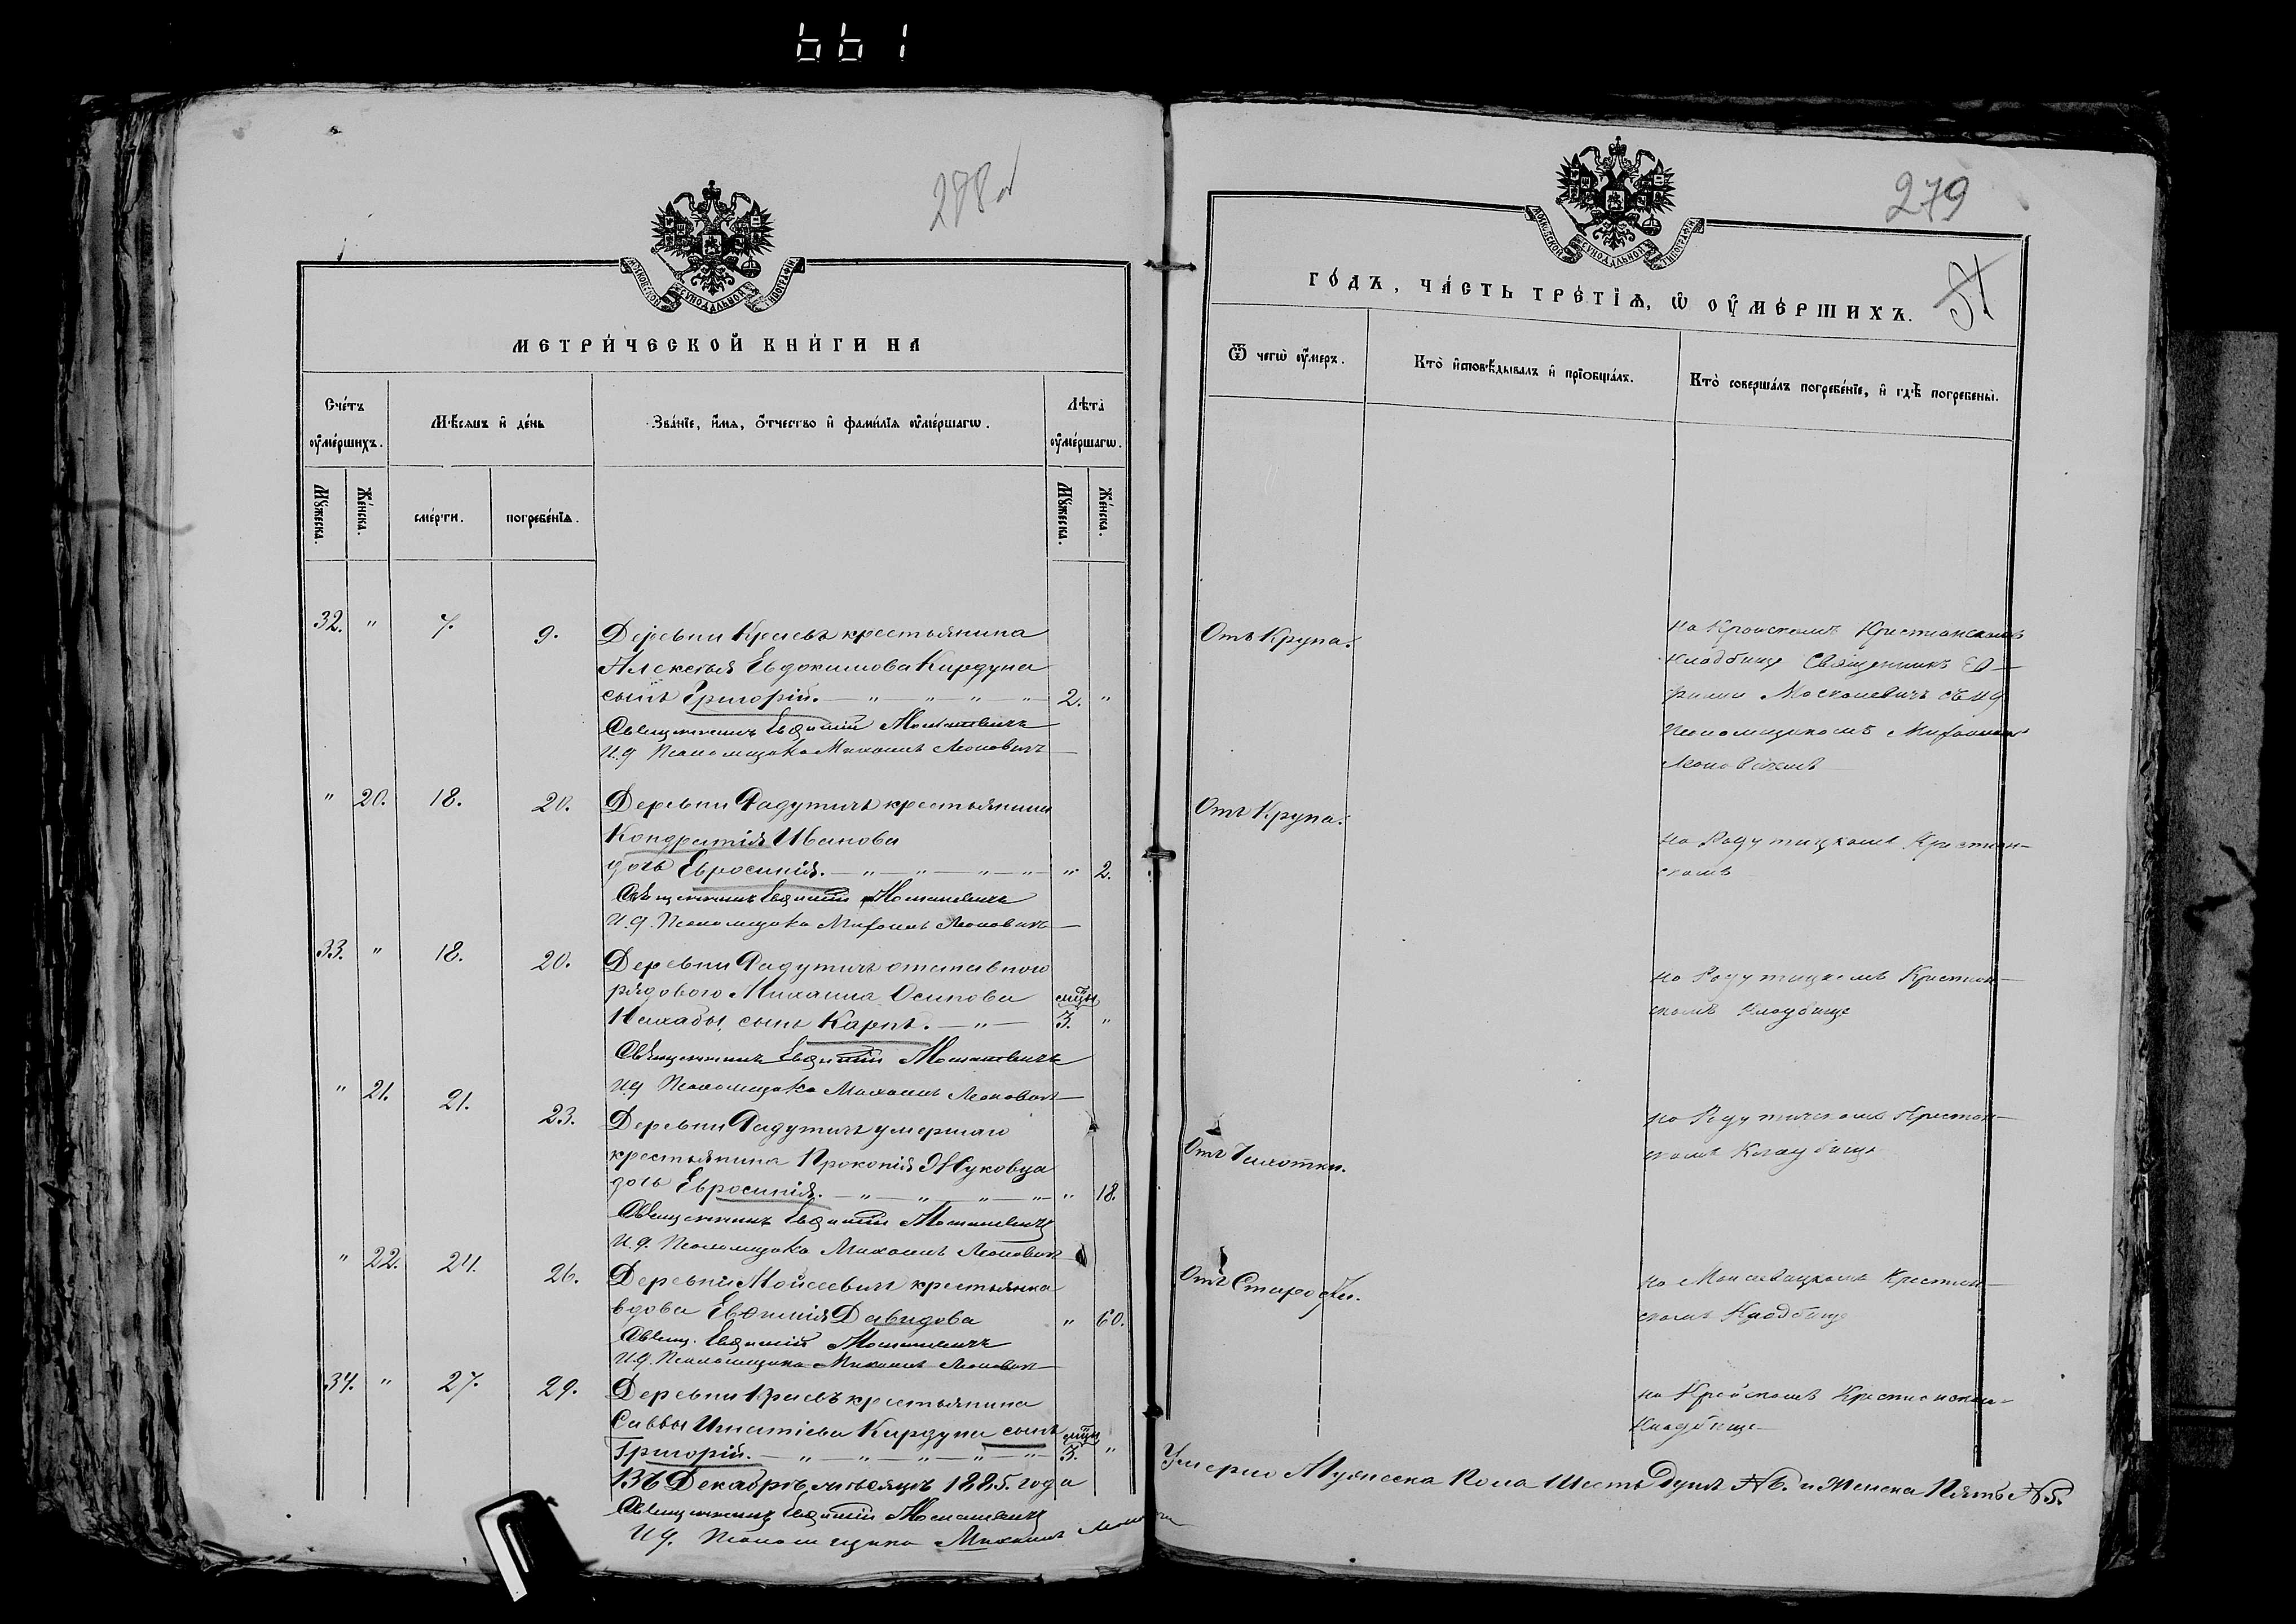 661
278 об
МОСКОВСКОЙ СѴНОДАЛЬНОЙ ТИПОГРАФІИ
МЕТРИ́ЧЕСКОЙ КНИ́ГИ НА
Сче́тъ оумéршихъ.
Мѣ́сяцъ и҆ де́нь
Зва́нїе, и҆́мя, ѻ҆́тчество и҆ фамилїя оумéршагѡ.
Лѣ́та оумéршагѡ.
Мꙋ́жеска.
Же́нска.
сме́рти.
погребе́нїѧ.
Мꙋ́жеска.
Же́нска.
32. " 7. 9. Деревни Краевъ крестьянина
Алексѣя Евдокимова Кирдуна
сынъ Григорій. — " — " — " — " — 2. "
Священникъ Евфимій
И.д. Псаломщика Михаилъ Леоновичъ
" 20. 18. 20. Деревни Радутичъ крестьянина
Кондратія Иванова
дочь Евросинія. — " — " — " — " — " 2.
Священникъ Евфимій
И.д. Псаломщика Михаилъ Леоновичъ
33. " 18. 20. Деревни Радутичъ отставного
рядового Михаила Осипова мцы
сынъ Карпъ. — " — 3. "
Священникъ Евфимій
И.д. Псаломщика Михаилъ Леоновичъ
" 21. 21. 23. Деревни Радутичъ умершаго
крестьянина Прокопія Жуковца
дочь Евросинія. — " — " — " — " — " 18.
Священникъ Евфимій
И.д. Псаломщика Михаилъ Леоновичъ
" 22. 24. 26. Деревни Мойсеевичъ крестьянка
вдова Евфимія Давидова " 60.
Свящ. Евфимій
И.д. Псаломщика Михаилъ Леоновичъ
34. " 27. 29. Деревни Краевъ крестьянина
Саввы Игнатіева Кирдуна сынъ мцы
Григорій. — " — " — " — " — " — 3. "
Въ Декабрѣ мѣсяцѣ 1885. года
Священникъ Евфимій
И.д. Псаломщика Михаилъ
279
МОСКОВСКОЙ СѴНОДАЛЬНОЙ ТИПОГРАФІИ
ГО́ДЪ, ЧА́СТЬ ТРЕ́ТЇѦ, Ѡ҆ ОУМЕ́РШИХЪ.
Ѿ чегѡ̀ оу́меръ.
Кто̀ и҆сповѣ́дывалъ и҆ прїобща́лъ.
Кто̀ соверша́лъ погребе́нїе, и҆ гдѣ̀ погребены̀.
Отъ Крупа.
на Кройскомъ Христіанскомъ
кладбище Священникъ Ев-
фимій съ ид
Псаломщикомъ Михаиломъ
Леоновичемъ
Отъ Крупа.
на Радутицкомъ Христіан-
скомъ
на Радутицкомъ Христіан-
скомъ кладбище
Отъ Чахотки.
на Радутичскомъ Христіан-
скомъ Кладбище
Отъ Старости.
на Христіан-
скомъ Кладбище
на Кройскомъ Христіанском
Кладбище
Умерло Мужеска Пола Шесть Душъ № 6. и Женска Пять № 5.